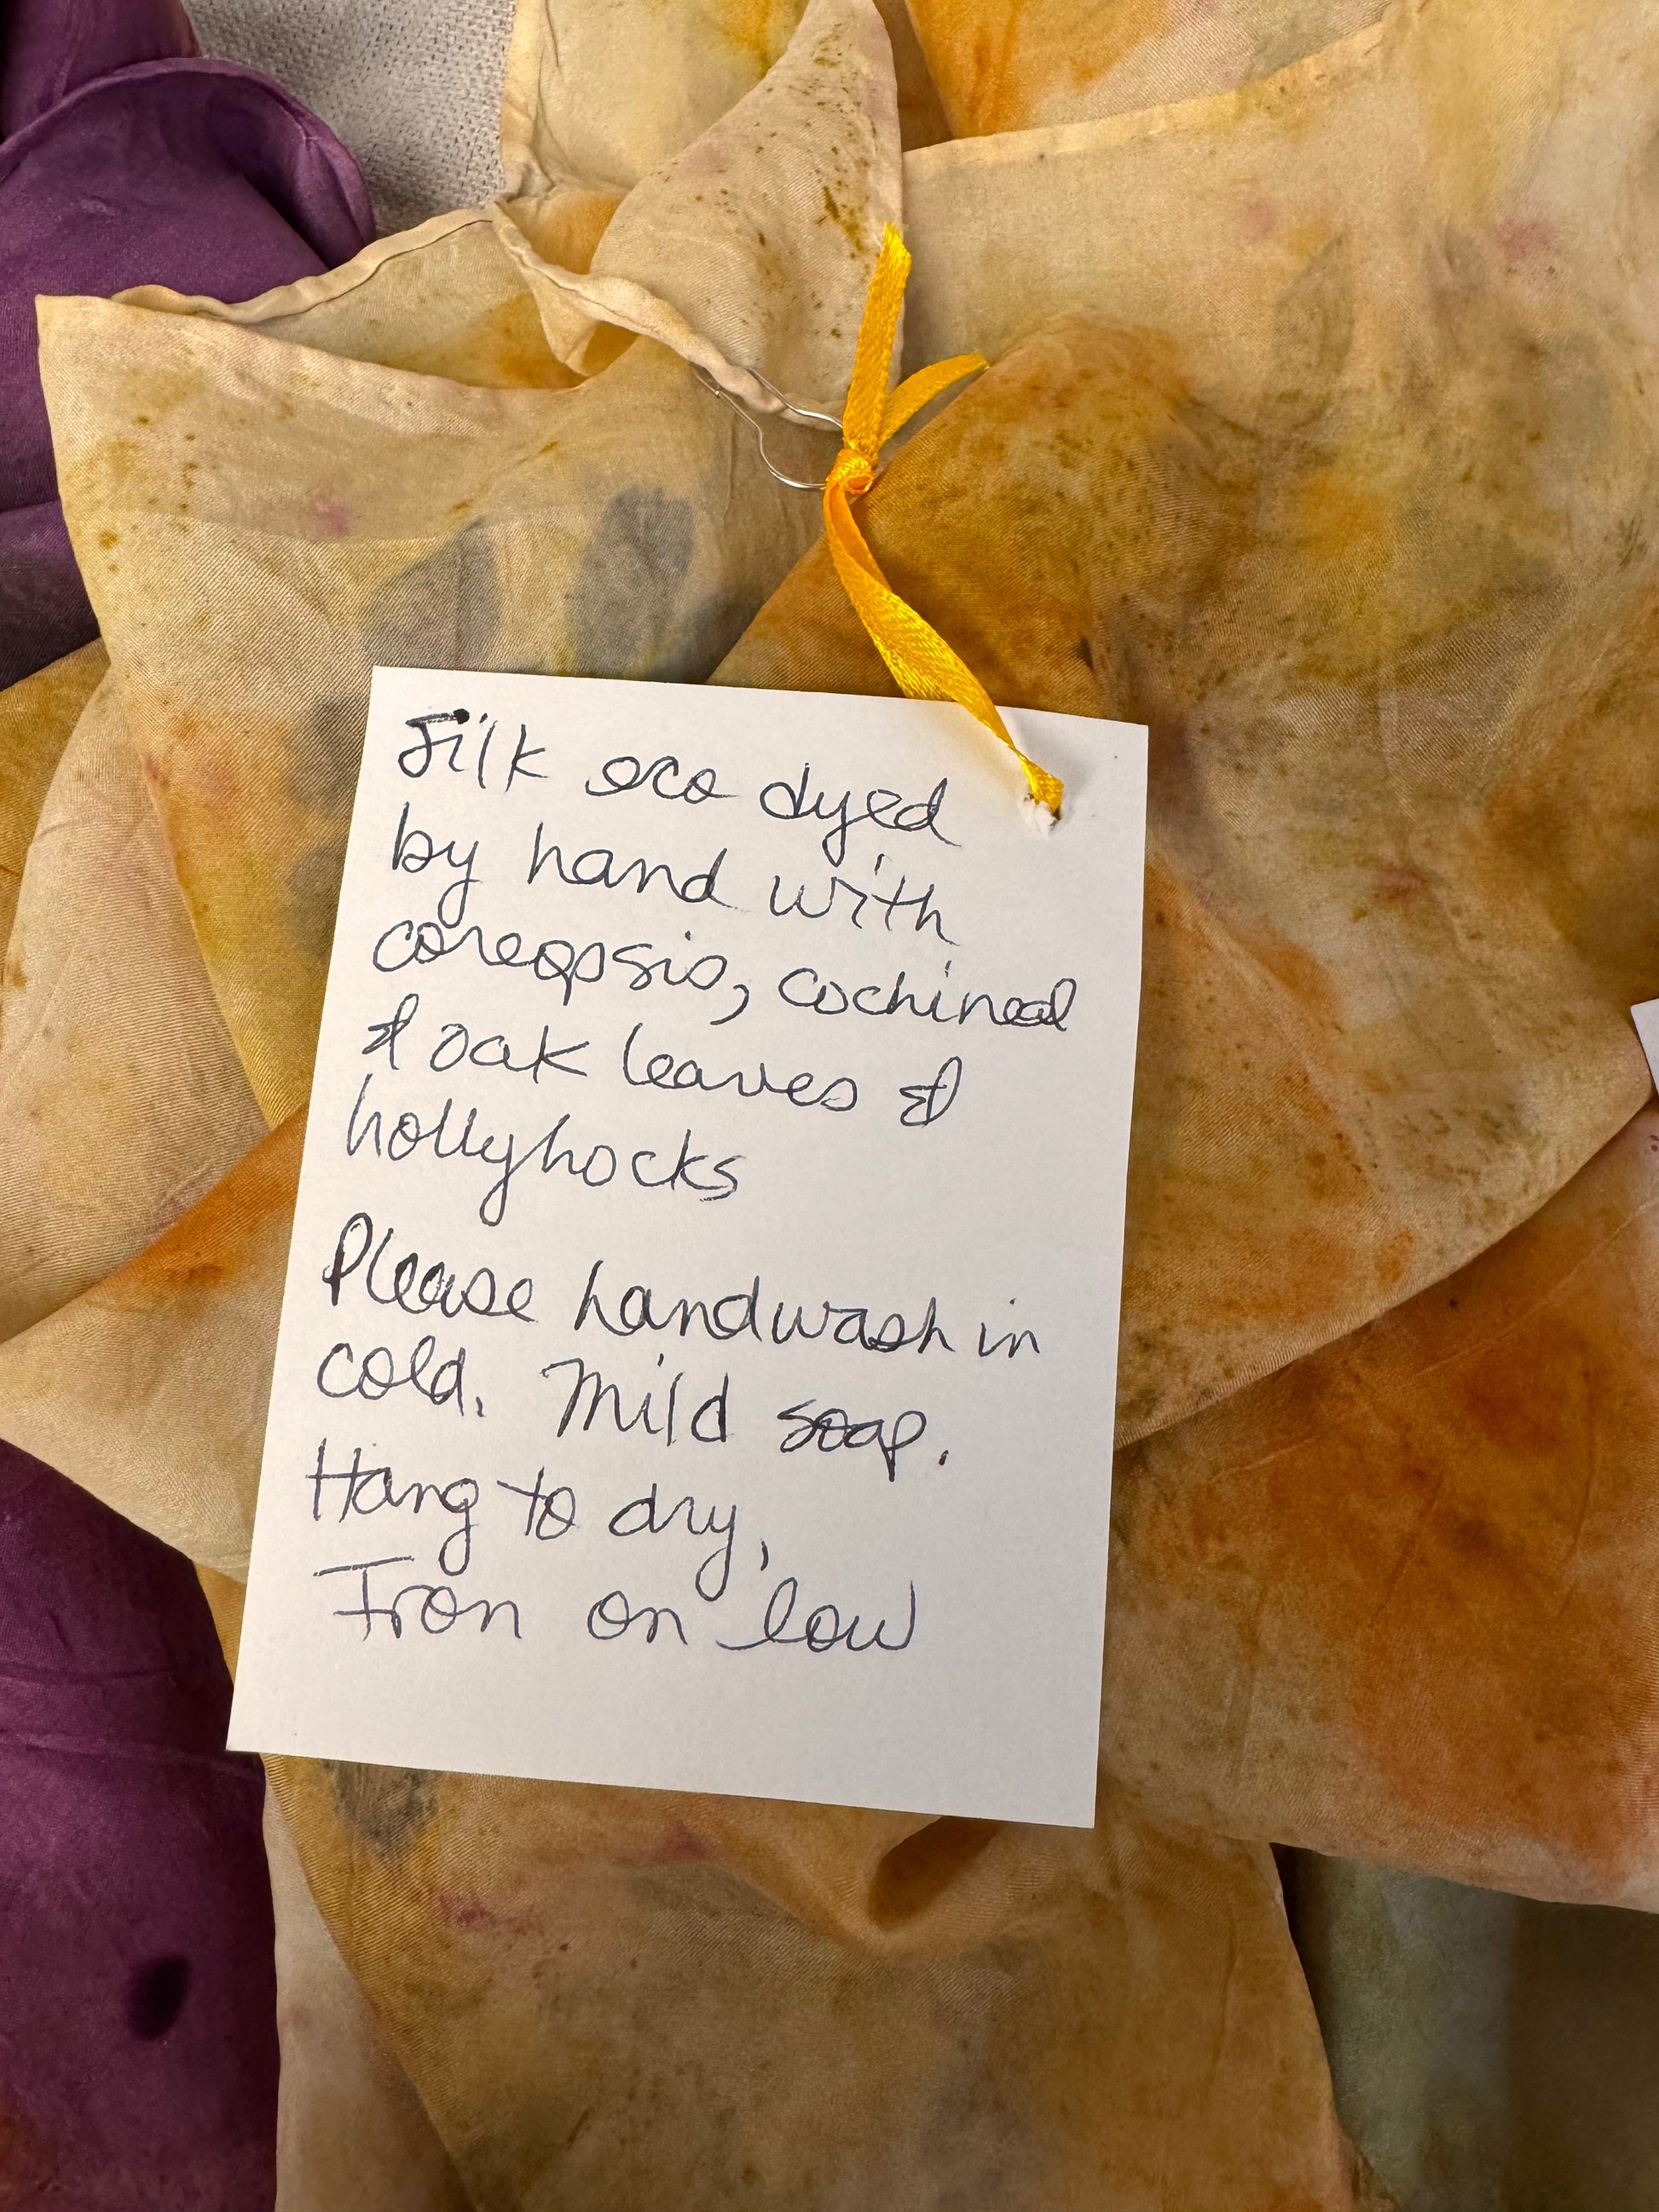 Silk eco dyed
by hand with
coreopsis, cochineal
& oak leaves &
hollyhocks
Please handwash in
cold. Mild soap.
Hang to dry,
Iron on low